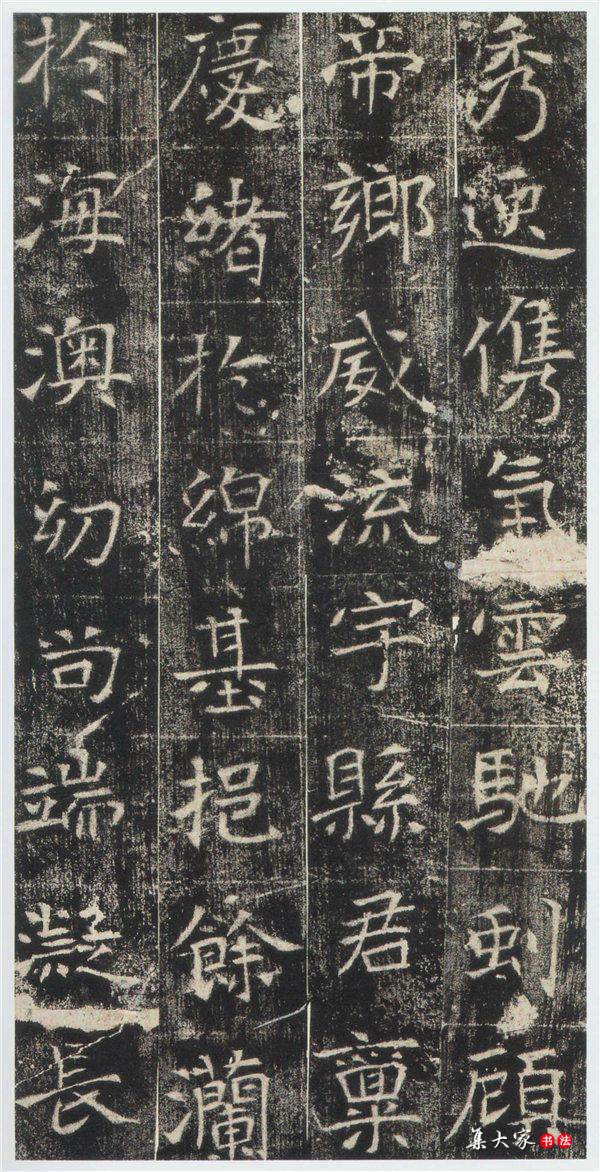 秀儁氣雲馳顧
帝鄉威流宇縣君稟
慶緒於綿基挹餘瀾
於海澳幼尚端凝長
集大家书法